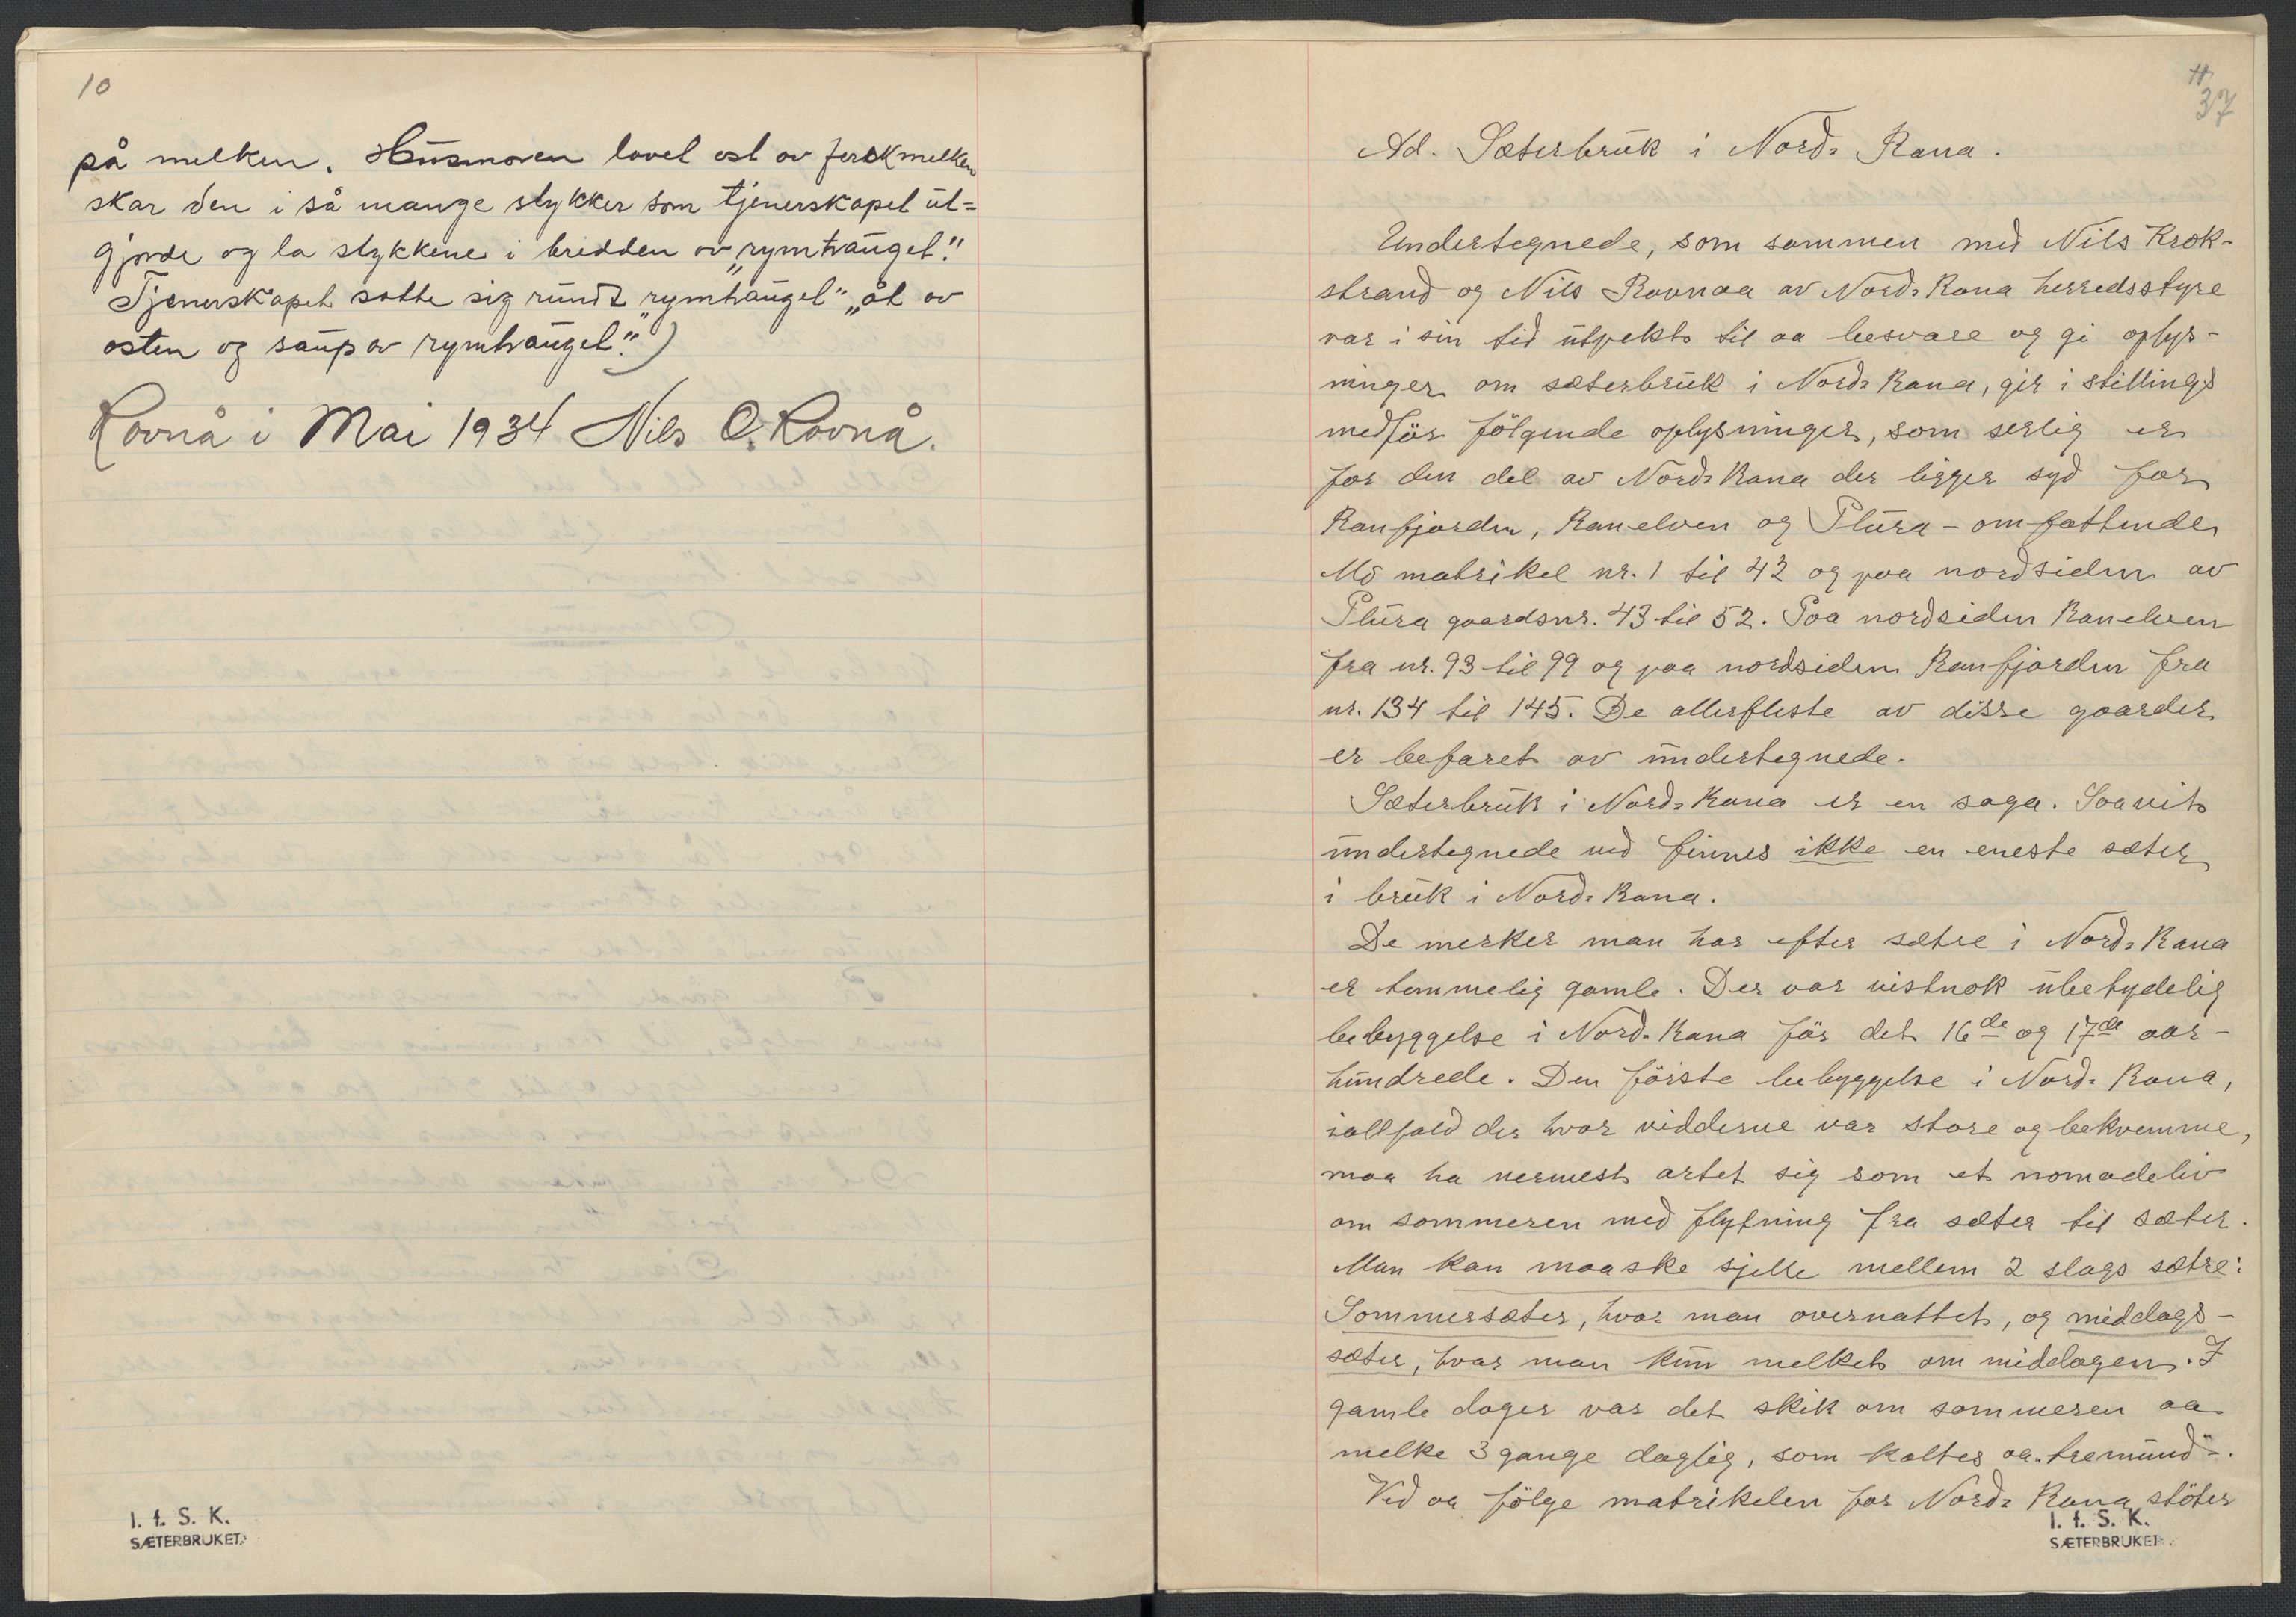 10
på melken. Húsmoren lovet ost av ferskmelken
skar den i så mange stykker som tjenerskapet út=
gjorde og la stykkene i bredden av „rymtraúget."
Tjenerskapet satte sig rúndt „rymtraúget" „åt av
osten og saúp av rymtraúget".)
Rovnå i Mai 1934 Nils O. Rovnå.
I. f. S. K.
SÆTERBRUKET.
11
37
Ad. Sæterbrúk i Nord-Rana.
Undertegnede, som sammen med Nils Krok-
strand og Nils Rovnaa av Nord-Rana herredsstyre
var i sin tid útpekt til aa besvare og gi oplys-
ninger om sæterbrúk i Nord-Rana, gir i stillings
medför fölgende oplysninger, som serlig er
for den del av Nord-Rana der ligger syd for
Ranfjorden, Ranelven og Plúra - omfattende
Mo matrikel nr. 1 til 42 og paa nordsiden av
Plúra gaardsnr. 43 til 52. Paa nordsiden Ranelven
fra nr. 93 til 99 og paa nordsiden Ranfjorden fra
nr. 134 til 145. De allerfleste av disse gaarder
er befaret av úndertegnede.
Sæterbrúk i Nord-Rana er en saga. Saavit
úndertegnede ved finnes ikke en eneste sæter
i brúk i Nord-Rana.
De merker man har efter sætre i Nord-Rana
er temmelig gamle. Der var vistnok úbetydelig
bebyggelse i Nord-Rana för det 16de og 17de aar-
húndrede. Den förste bebyggelse i Nord-Rana,
iallfald der hvor vidderne var store og bekvemme,
maa ha nermest artet sig som et nomadeliv
om sommeren med flytning fra sæter til sæter.
Man kan maaske sjelle mellem 2 slags sætre:
Sommersæter, hvor man overnattet, og middags-
sæter, hvor man kún melket om middagen. I
gamle dager var det skik om sommeren aa
melke 3 gange daglig, som kaltes aa „tremúnd".
Ved aa fölge matrikelen for Nord-Rana stöter
I. f. S. K.
SÆTERBRUKET.